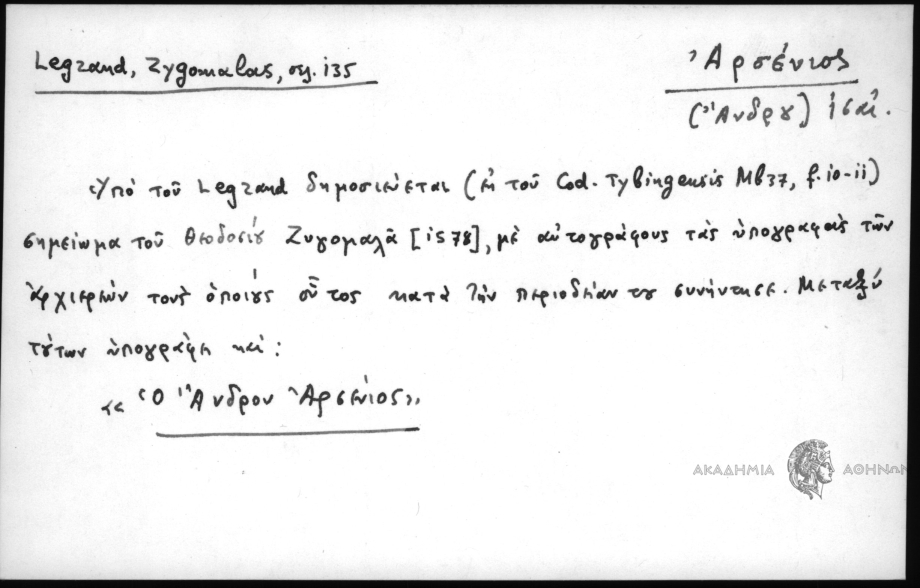 Legrand, Zygomalas, σελ. 135
Ἀρσένιος
(Ἄνδρου) ιϛʹ αἰ.
Ὑπὸ τοῦ Legrand δημοσιεύεται (ἐκ τοῦ Cod. Tybingensis Mb37, f. 10-11)
σημείωμα τοῦ Θεοδοσίου Ζυγομαλᾶ [1578], μὲ αὐτογράφους τὰς ὑπογραφὰς τῶν
ἀρχιερέων τοὺς ὁποίους οὗτος κατὰ τὴν περιοδείαν του συνήντησε. Μεταξὺ
τούτων ὑπογράφει καί:
«Ὁ Ἄνδρου Ἀρσένιος»
ΑΚΑΔΗΜΙΑ ΑΘΗΝΩΝ